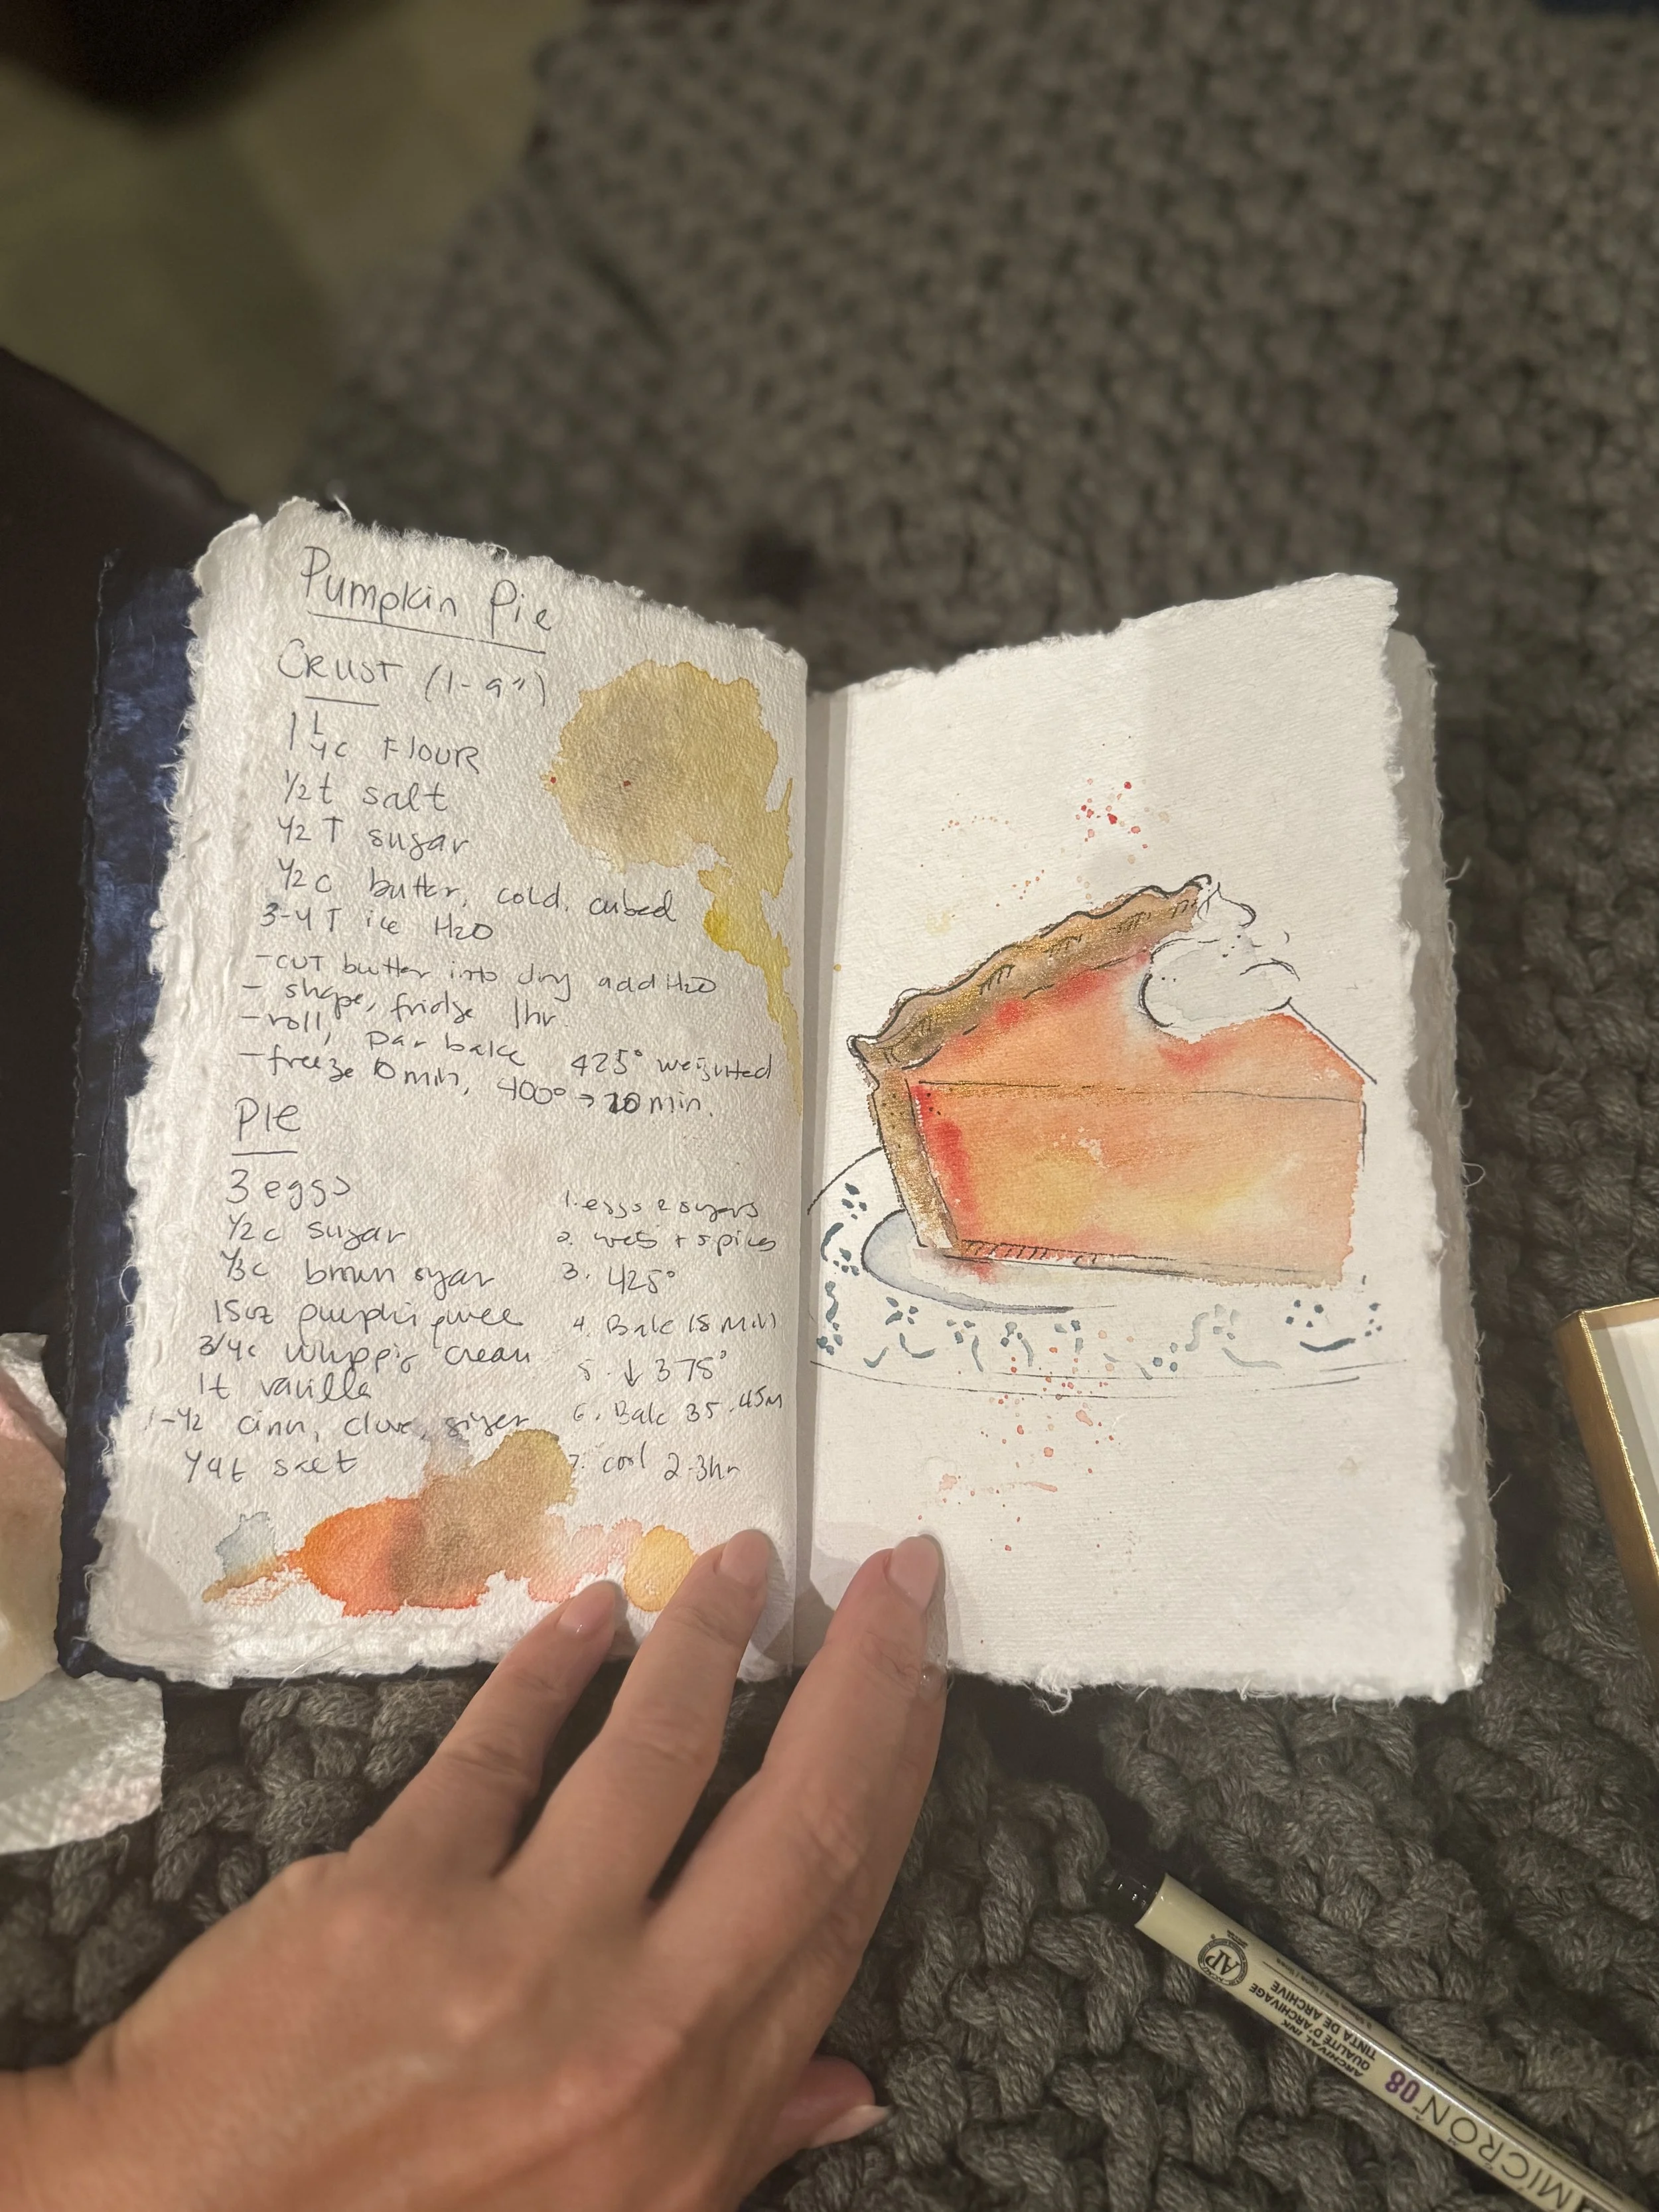 Pumpkin Pie
CRUST (1-9")
1 1/4c FLOUR
1/2t salt
1/2 T sugar
1/2 c butter, cold, cubed
3-4 T ice H2O
-CUT butter into dry add H2O
- shape, fridge 1hr.
-roll, par bake 425° weighted
-freeze 10 min, 400° → 20 min.
PIE
3 eggs
1/2c sugar
1/3c brown sugar
15oz pumpkin puree
3/4c whipping cream
1t vanilla
1-1/2 cinn, clove, ginger
1/4t salt
1. eggs & sugars
2. wets + spices
3. 425°
4. Bake 15 min
5. ↓ 375°
6. Bake 35-45m
7. cool 2-3hr
AP
ARCHIVAL INK
QUALITÉ D'ARCHIVAGE
TINTA DE ARCHIVE
MICRON 08